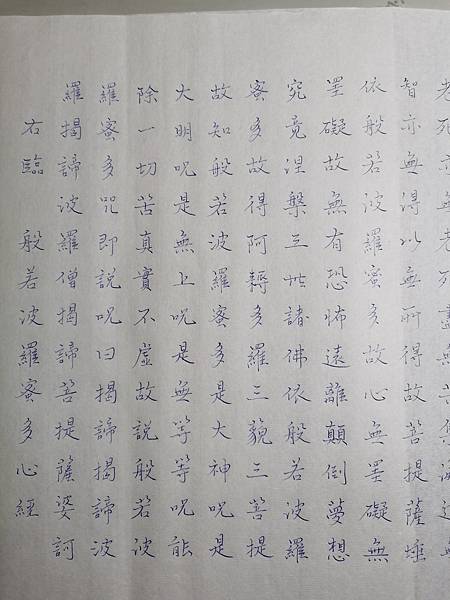 老死亦無老死盡無苦集滅道無
智亦無得以無所得故菩提薩埵
依般若波羅蜜多故心無罣礙無
罣礙故無有恐怖遠離顛倒夢想
究竟涅槃三世諸佛依般若波羅
蜜多故得阿耨多羅三藐三菩提
故知般若波羅蜜多是大神呪是
大明呪是無上呪是無等等呪能
除一切苦真實不虛故說般若波
羅蜜多咒即說呪曰揭諦揭諦波
羅揭諦波羅僧揭諦菩提薩婆訶
右臨 般若波羅蜜多心經